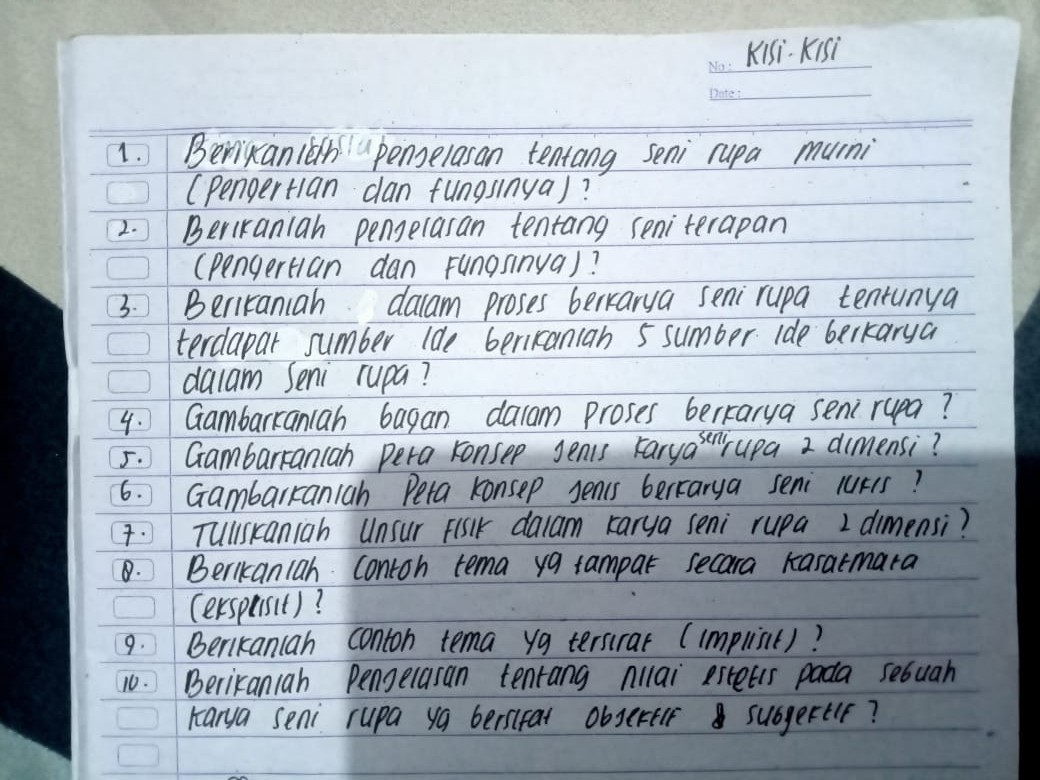 KISi-KISi
No:
Date:
1. Berikanlah penjelasan tentang seni rupa murni
(pengertian dan fungsinya)?
2. Berikanlah penjelasan tentang seni terapan
(pengertian dan Fungsinya)?
3. Berikanlah dalam proses berkarya seni rupa tentunya
terdapat sumber ide berikanlah 5 sumber ide berkarya
dalam seni rupa?
4. Gambarkanlah bagan dalam proses berkarya seni rupa?
5. Gambarkanlah peta konsep jenis karya seni rupa 2 dimensi?
6. Gambarkanlah Peta konsep jenis berkarya seni lukis?
7. Tuliskanlah Unsur Fisik dalam karya seni rupa 2 dimensi?
8. Berikanlah contoh tema yg tampak secara kasatmata
(eksplisit)?
9. Berikanlah contoh tema yg tersirat (implisit)?
10. Berikanlah Penjelasan tentang nilai estetis pada sebuah
karya seni rupa yg bersifat objektif & subjektif?